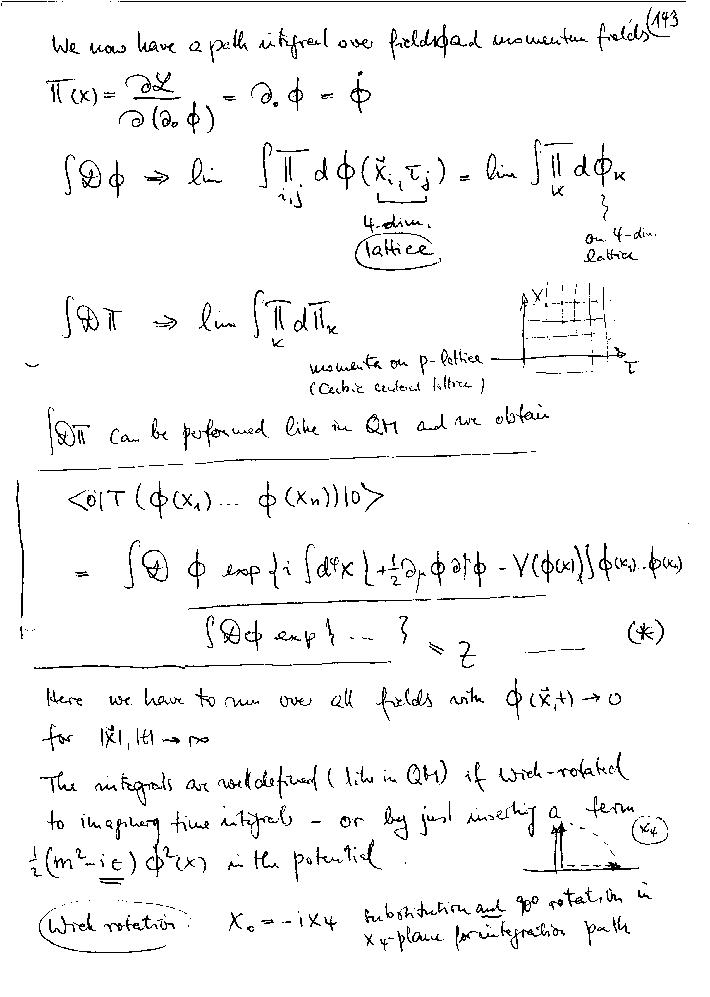 (143
We now have a path integral over fields ϕ and momentum fields
Π(x) = ∂ℒ / ∂(∂₀ϕ) = ∂₀ϕ = ϕ̇
∫𝒟ϕ ⇒ lim ∫∏_{i,j} dϕ(x⃗ᵢ, τⱼ) = lim ∫∏_k dϕ_k
4-dim.
lattice
on 4-dim.
lattice
∫𝒟Π ⇒ lim ∫∏_k dΠ_k
X
τ
momenta on p-lattice
(Cubic centered lattice)
∫𝒟Π can be performed like in QM and we obtain
<0|T(ϕ(x₁)... ϕ(xₙ))|0>
= ∫𝒟ϕ exp{i∫d⁴x {+½∂_μϕ∂^μϕ - V(ϕ(x))} ϕ(x₁)..ϕ(xₙ)
∫𝒟ϕ exp{...} = Z (*)
Here we have to run over all fields with ϕ(x⃗,t) → 0
for |x⃗|, |t| → ∞
The integrals are well defined (like in QM) if Wick-rotated
to imaginary time integrals – or by just inserting a term
½(m²-iε)ϕ²(x) in the potential.
X₄
Wick rotation: X₀ = -iX₄ substitution and 90° rotation in
X₄-plane for integration path